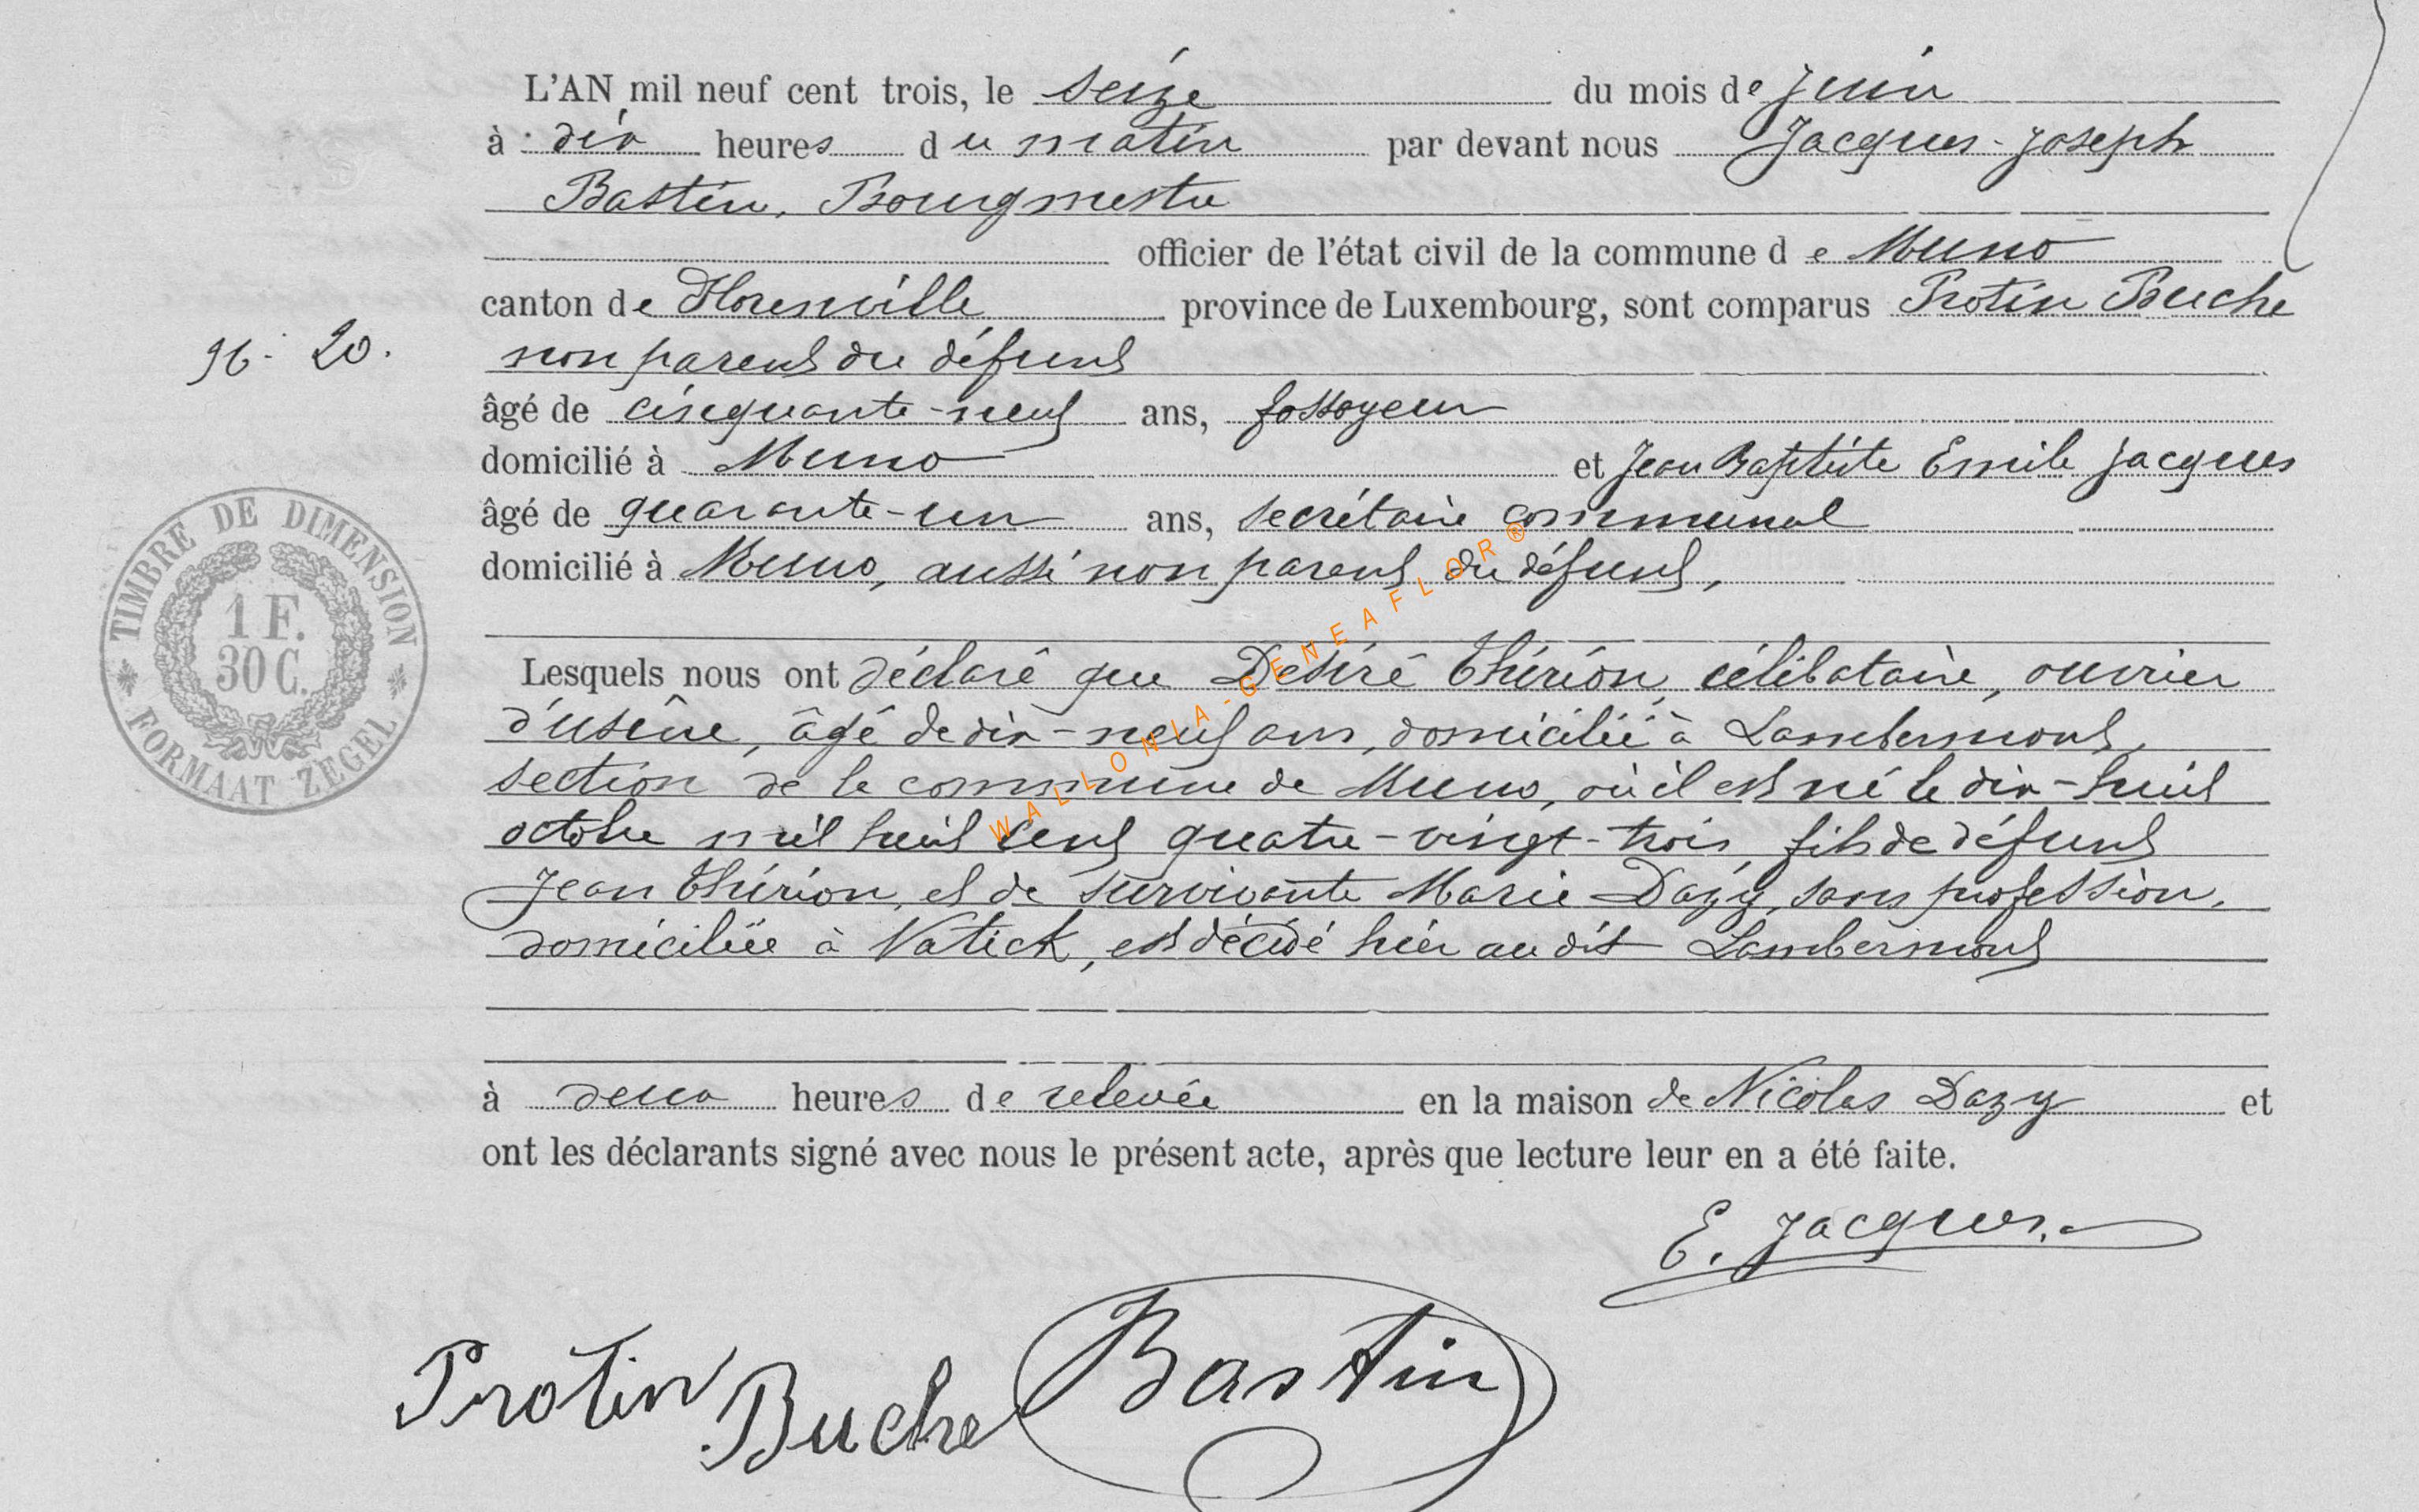 L'AN mil neuf cent trois, le seize du mois de juin
à dix heures du matin par devant nous Jacques-Joseph
Bastin, Bourgmestre
officier de l'état civil de la commune de Muno
canton de Florenville province de Luxembourg, sont comparus Protin Buche
non parent du défunt
96. 20.
âgé de cinquante-neuf ans, fossoyeur
domicilié à Muno et Jean Baptiste Emile Jacques
âgé de quarante-un ans, secrétaire communal
domicilié à Muno, aussi non parent du défunt,
Lesquels nous ont déclaré que Désiré Thirion, célibataire, ouvrier
d'usine, âgé de dix-neuf ans, domicilié à Lambermont,
section de la commune de Muno, où il est né le dix-huit
octobre mil huit cent quatre-vingt-trois, fils de défunt
Jean Thirion, et de survivante Marie Dazy, sans profession,
domiciliée à Natick, est décédé hier au dit Lambermont
à deux heures de relevée en la maison de Nicolas Dazy et
ont les déclarants signé avec nous le présent acte, après que lecture leur en a été faite.
E. Jacques.
Protin Buche Bastin
TIMBRE DE DIMENSION
1 F.
30 C.
FORMAAT ZEGEL
WALLONIA-GENEAFLOR®